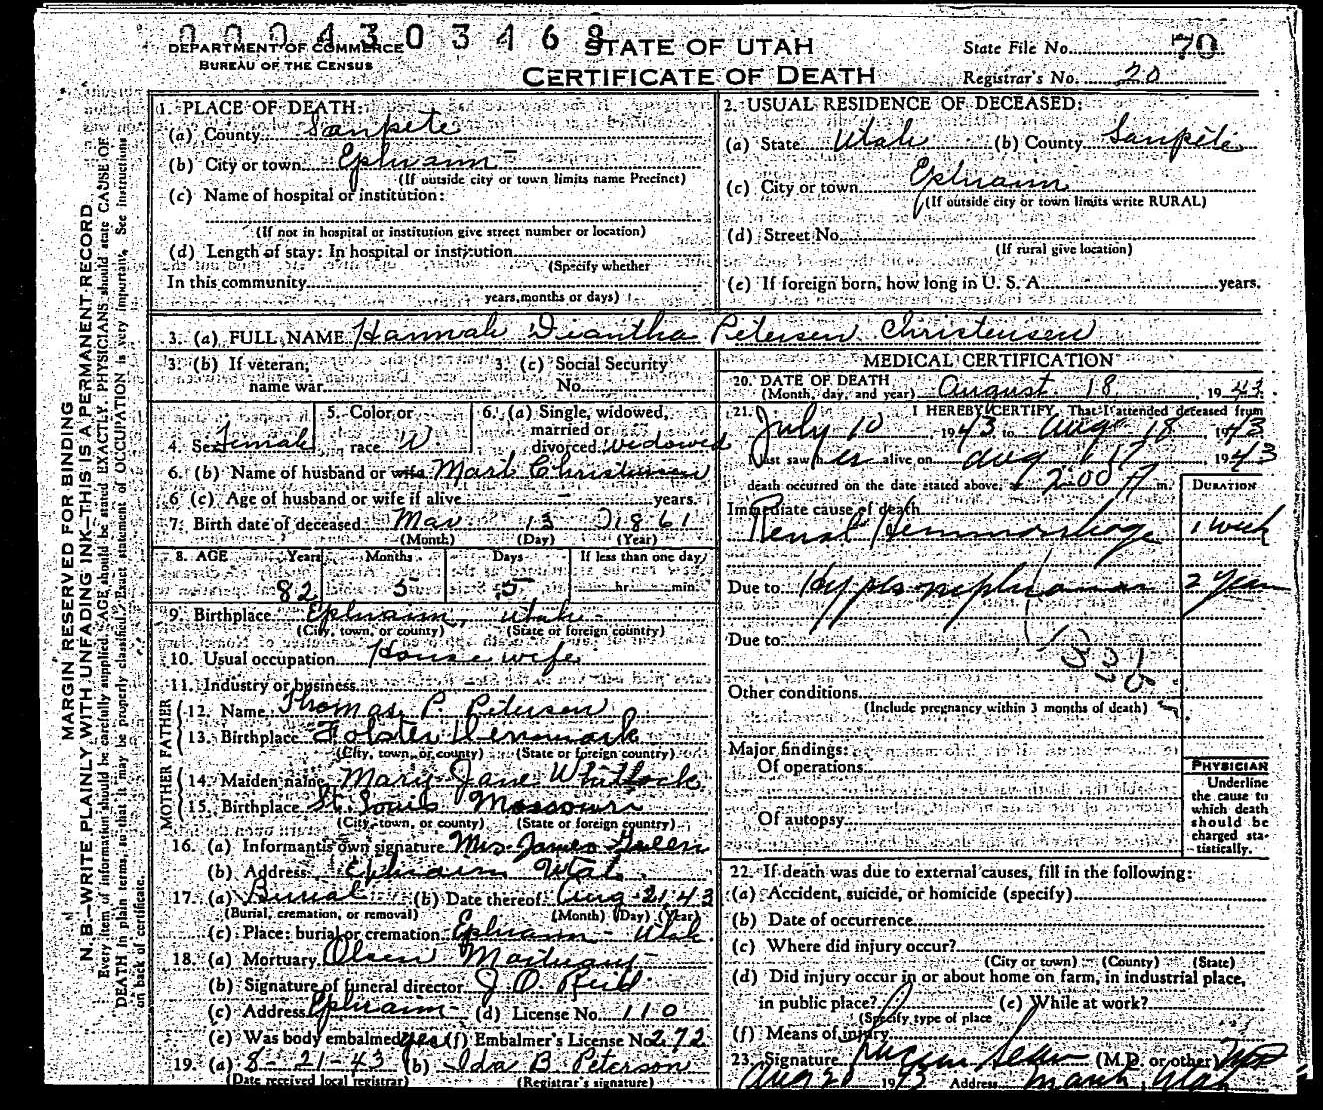 0004303468
DEPARTMENT OF COMMERCE
BUREAU OF THE CENSUS
STATE OF UTAH
CERTIFICATE OF DEATH
State File No. 70
Registrar's No. 20
MARGIN RESERVED FOR BINDING
N. B.—WRITE PLAINLY WITH UNFADING INK—THIS IS A PERMANENT RECORD
Every item of information should be carefully supplied. AGE should be stated EXACTLY. PHYSICIANS should state CAUSE OF
DEATH in plain terms, so that it may be properly classified. Exact statement of OCCUPATION is very important. See instructions
on back of certificate.
1. PLACE OF DEATH:
(a) County Sanpete
(b) City or town Ephraim
(If outside city or town limits name Precinct)
(c) Name of hospital or institution:
(If not in hospital or institution give street number or location)
(d) Length of stay: In hospital or institution
(Specify whether
In this community
years, months or days)
2. USUAL RESIDENCE OF DECEASED:
(a) State Utah (b) County Sanpete
(c) City or town Ephraim
(If outside city or town limits write RURAL)
(d) Street No.
(If rural give location)
(e) If foreign born, how long in U. S. A. years.
3. (a) FULL NAME Hannah Diantha Petersen Christensen
3. (b) If veteran,
name war
3. (c) Social Security
No.
4. Sex Female
5. Color or
race W
6. (a) Single, widowed,
married or
divorced widowed
6. (b) Name of husband or wife Mart Christensen
6 (c) Age of husband or wife if alive – years.
7. Birth date of deceased Mar 13 1861
(Month) (Day) (Year)
8. AGE Years Months Days If less than one day
82 5 5 hr. min.
9. Birthplace Ephraim, Utah
(City, town, or county) (State or foreign country)
10. Usual occupation House wife
11. Industry or business
FATHER
12. Name Thomas P. Petersen
13. Birthplace Denmark
(City, town, or county) (State or foreign country)
MOTHER
14. Maiden name Mary Jane Whitlock
15. Birthplace St. Louis Missouri
(City, town, or county) (State or foreign country)
16. (a) Informant's own signature Mrs James
(b) Address Ephraim Utah
17. (a) Burial (b) Date thereof Aug 21 43
(Burial, cremation, or removal) (Month) (Day) (Year)
(c) Place: burial or cremation Ephraim - Utah
18. (a) Mortuary Olsen Mortuary
(b) Signature of funeral director J. O.
(c) Address Ephraim (d) License No. 110
(e) Was body embalmed yes (f) Embalmer's License No. 272
19. (a) 8-21-43 (b) Ida B. Peterson
(Date received local registrar) (Registrar's signature)
MEDICAL CERTIFICATION
20. DATE OF DEATH
(Month, day, and year) August 18, 1943
21. I HEREBY CERTIFY That I attended deceased from
July 10, 1943 to Aug 18, 1943
I last saw her alive on Aug 17, 1943
death occurred on the date stated above, at 2:00 m.
DURATION
Immediate cause of death
Renal Hemmorhage 1 week
Due to Hypernephroma 2 years
Due to
Other conditions
(Include pregnancy within 3 months of death)
Major findings:
Of operations
Of autopsy
PHYSICIAN
Underline
the cause to
which death
should be
charged sta-
tistically.
22. If death was due to external causes, fill in the following:
(a) Accident, suicide, or homicide (specify)
(b) Date of occurrence
(c) Where did injury occur?
(City or town) (County) (State)
(d) Did injury occur in or about home on farm, in industrial place,
in public place? (e) While at work?
(Specify type of place
(f) Means of injury
23. Signature (M.D. or other) MD
Aug 20 1943 Address Manti, Utah